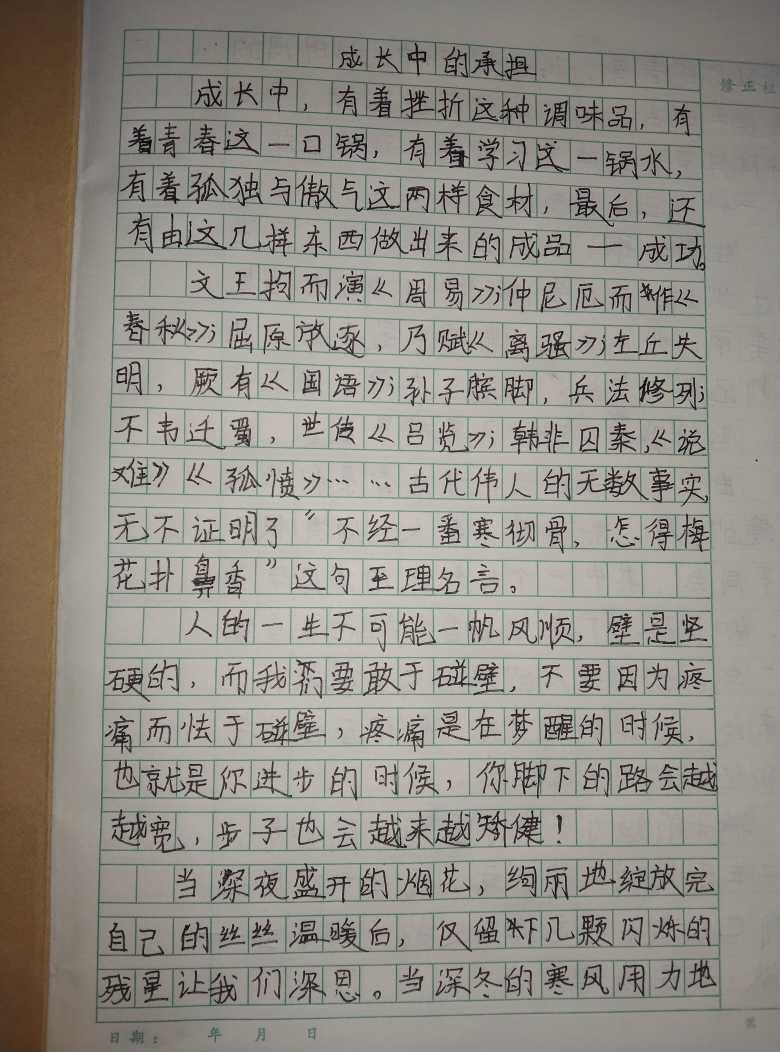 成长中的承担
修正栏
成长中，有着挫折这种调味品，有
着青春这一口锅，有着学习这一锅水，
有着孤独与傲气这两样食材，最后，还
有由这几样东西做出来的成品一成功。
文王拘而演《周易》；仲尼厄而作《
春秋》；屈原放逐，乃赋《离骚》；左丘失
明，厥有《国语》；孙子膑脚，兵法修列；
不韦迁蜀，世传《吕览》；韩非囚秦，《说
难》《孤愤》……古代伟人的无数事实，
无不证明了“不经一番寒彻骨，怎得梅
花扑鼻香”这句至理名言。
人的一生不可能一帆风顺，壁是坚
硬的，而我们要敢于碰壁，不要因为疼
痛而怯于碰壁，疼痛是在梦醒的时候，
也就是你进步的时候，你脚下的路会越
越宽，步子也会越来越矫健！
当深夜盛开的烟花，绚丽地绽放完
自己的丝丝温暖后，仅留下几颗闪烁的
残星让我们深思。当深冬的寒风用力地
日期： 年 月 日